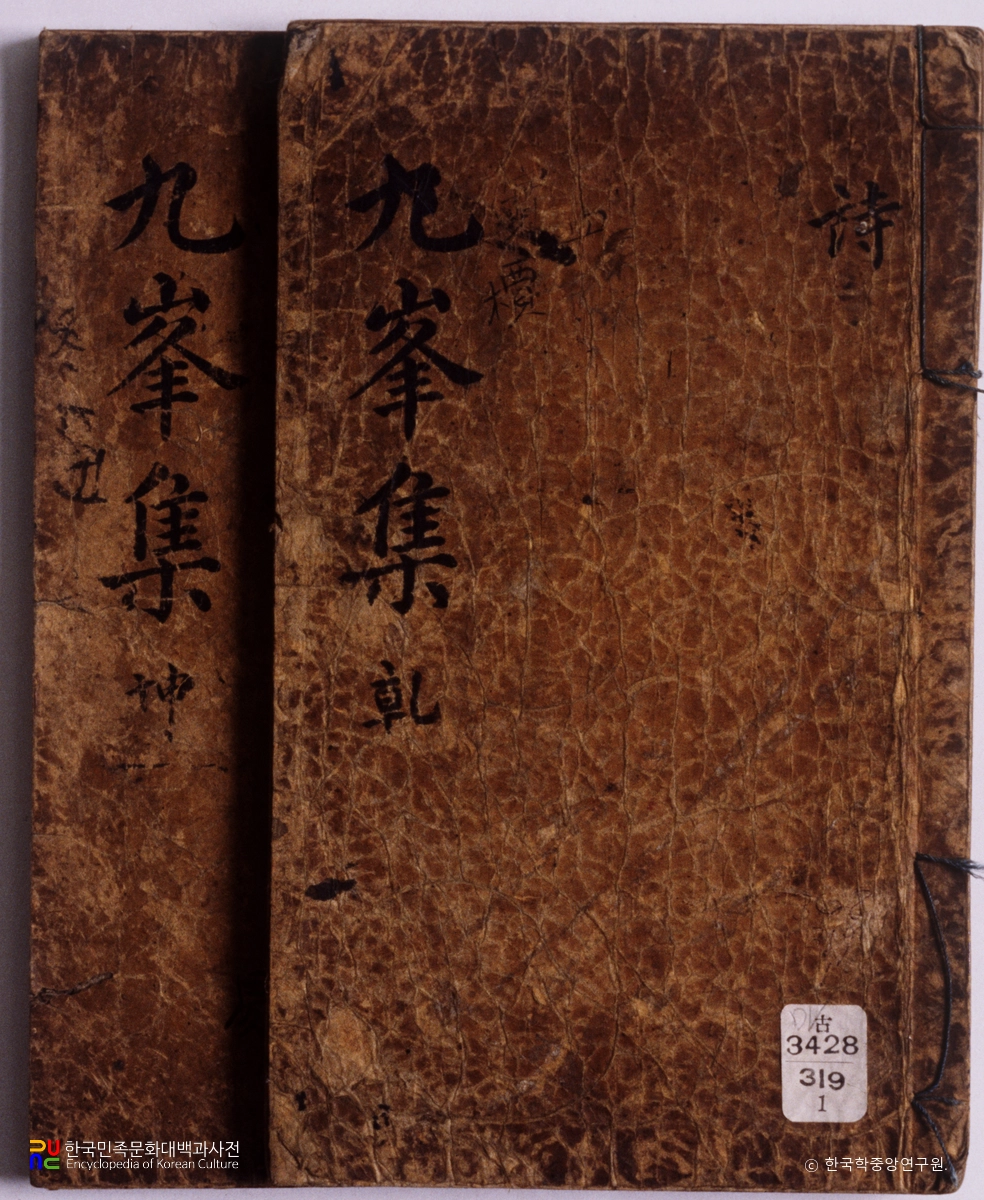 九峯集 乾
詩
九峯集 坤
古
3428
319
1
한국민족문화대백과사전
Encyclopedia of Korean Culture
© 한국학중앙연구원.